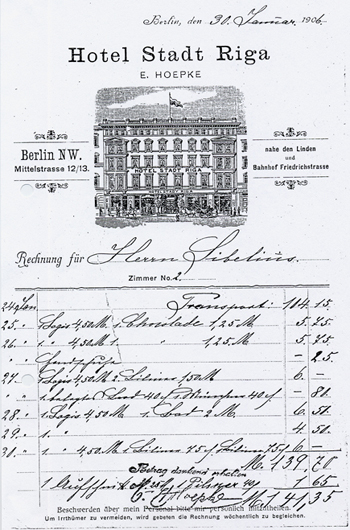 Berlin, den 30. Januar 1906.
Hotel Stadt Riga
E. HOEPKE
HOTEL STADT RIGA
Berlin NW.
Mittelstrasse 12/13.
nahe den Linden
und
Bahnhof Friedrichstrasse
Rechnung für Herrn Sibelius.
Zimmer No. 2.
24 Jan Transport: 104.15.
25. " 1 Logis 4,50 M 1 Chocolade 1,25 M 5.75
26. " 1 " 4,50 M 1 " 1,25 M 5.75
" — 25.
27. " 1 Logis 4,50 M 1,50 M 6 —
40 — 80.
28. " 1 Logis 4,50 1 Bad 2 M. 6.50
29. " 1. 4.50
30. " 1 " 4,50 M 75 75 6 —
Betrag dankend erhalten M. 139,70
1 65
E. Hoepke M 141,35
Beschwerden über mein Personal bitte mir persönlich mitzutheilen.
Um Irrthümer zu vermeiden, wird gebeten die Rechnung wöchentlich zu begleichen.